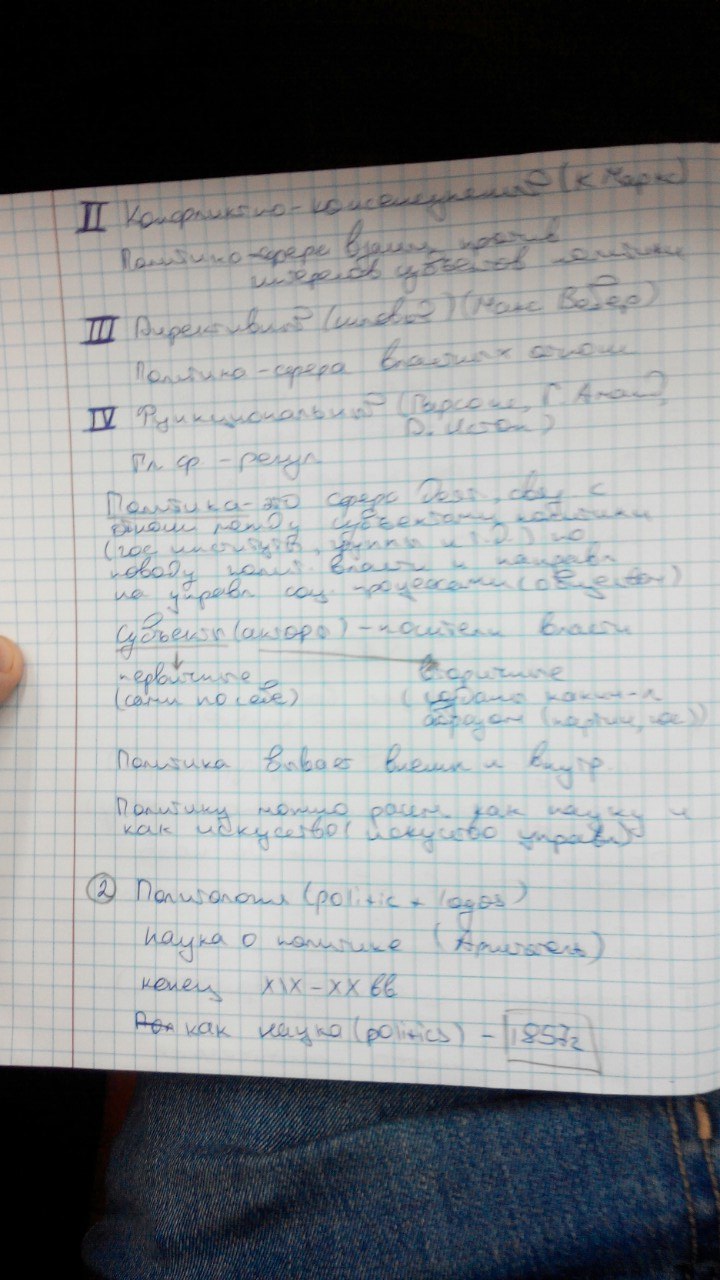 II Конфликтно-консенсусный (К. Маркс)
Политика-сфера взаим. против
интересов субъектов политики
III Директивный (силовой) (Макс Вебер)
Политика-сфера властных отнош
IV Функциональный (Парсонс, Г. Алмонд,
D. Истон)
Гл ф - регул
Политика - это сфера деят, связ с
отнош между субъектами политики
(гос институты, группы и т.д.) по
поводу полит. власти и направл
на управл соц. процессами (обществом)
Субъекты (акторы) - носители власти
первичные вторичные
(сами по себе) (созданы каким-л
образом (партии, гос))
Политика бывает внешн и внутр.
Политику можно рассм как науку и
как искусство (искусство управл)
② Политология (politic + logos)
наука о политике (Аристотель)
конец XIX-XX вв
как наука (politics) - 1857г